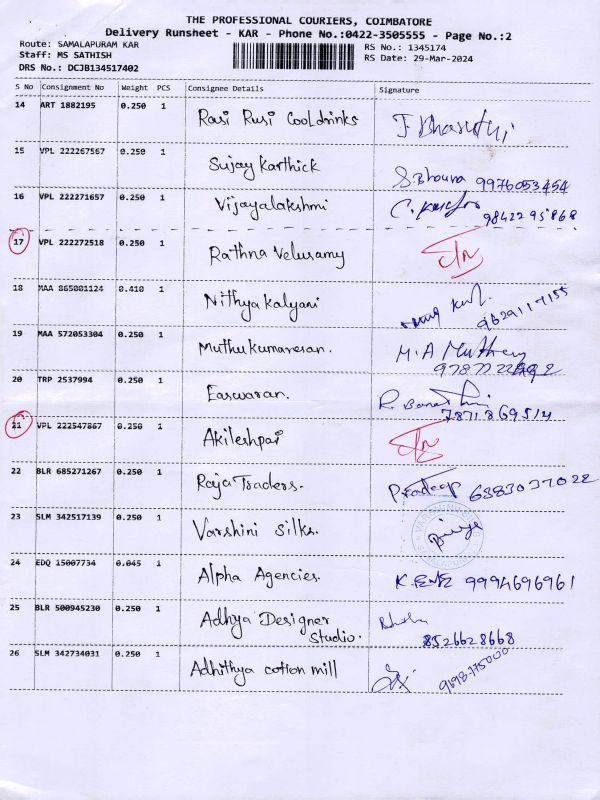 THE PROFESSIONAL COURIERS, COIMBATORE
Delivery Runsheet - KAR - Phone No.:0422-3505555 - Page No.:2
Route: SAMALAPURAM KAR
RS No.: 1345174
Staff: MS SATHISH
RS Date: 29-Mar-2024
DRS No.: DCJB134517402
S No Consignment No Weight PCS Consignee Details Signature
14 ART 1882195 0.250 1 Rasi Rusi Cooldrinks J Bharathi
15 VPL 222267567 0.250 1 Sujay Karthick S. Bhouna 9976053454
16 VPL 222271657 0.250 1 Vijayalakshmi
9842295868
17 VPL 222272518 0.250 1 Rathna Velusamy
18 MAA 865001124 0.410 1 Nithya Kalyani
19 MAA 572053304 0.250 1 Muthukumaresan. M.A Muthu
20 TRP 2537994 0.250 1 Easwaran.
7871869514
21 VPL 222547867 0.250 1 Akileshpai
22 BLR 685271267 0.250 1 Raja Traders. Pradeep 6383037022
23 SLM 342517139 0.250 1 Varshini Silks.
24 EDQ 15007734 0.045 1 Alpha Agencies. 9994696961
25 BLR 500945230 0.250 1 Adhya Designer
Studio. 8526628668
26 SLM 342734031 0.250 1 Adhithya cotton mill